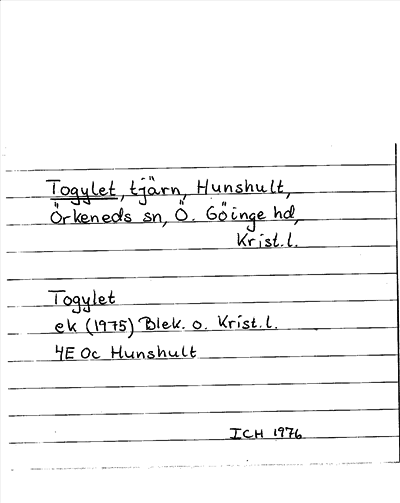 Togylet, tjärn, Hunshult,
Örkeneds sn, Ö. Göinge hd,
Krist.l.
Togylet
ek (1975) Blek. o. Krist.l.
4E Oc Hunshult
ICH 1976